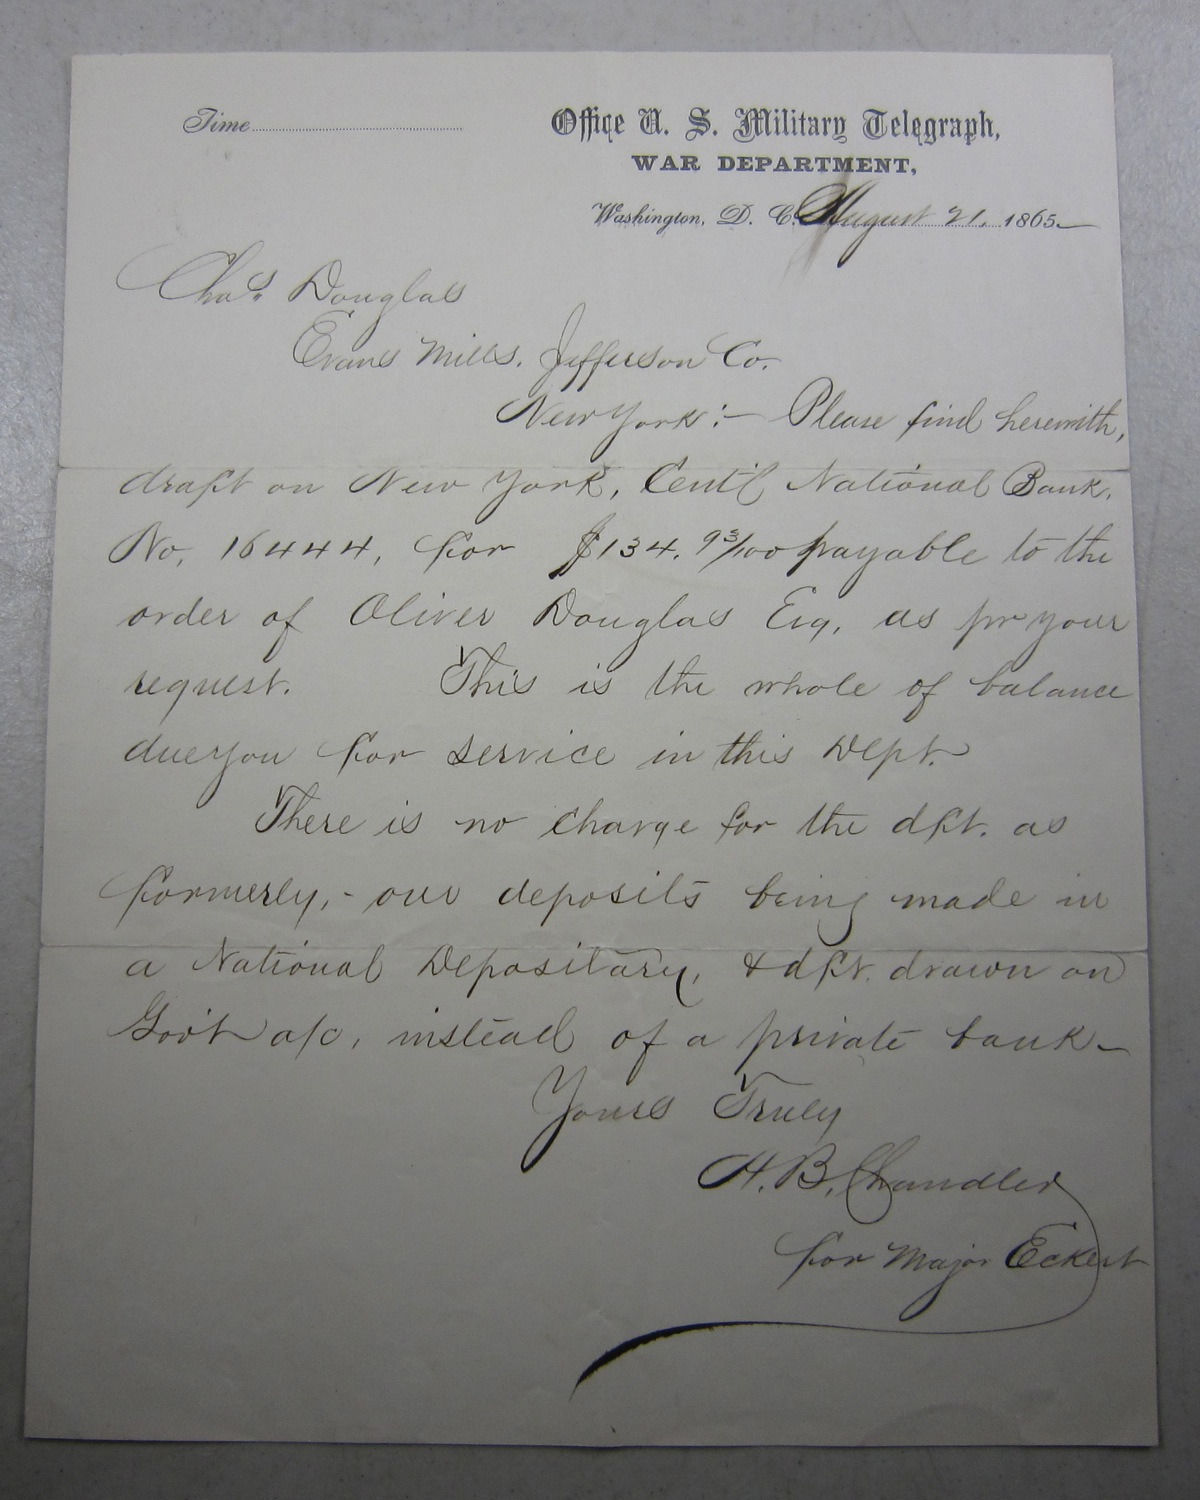 Time
Office U. S. Military Telegraph,
WAR DEPARTMENT,
Washington, D. C. August 21, 1865.
Chas. Douglas
Evans Mills. Jefferson Co.
New York:– Please find herewith,
draft on New York, Cent'l National Bank.
No. 16444, for $134. 93/100 payable to the
order of Oliver Douglas Esq, as pr your
request. This is the whole of balance
due you for service in this Dept.
There is no charge for the dft. as
formerly,- our deposits being made in
a National Depositary, & dft. drawn on
Gov't a/c, instead of a private bank–
Yours Truly
H. B. Chandler
for Major Eckert